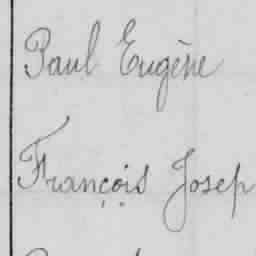 Paul Eugène
François Josep